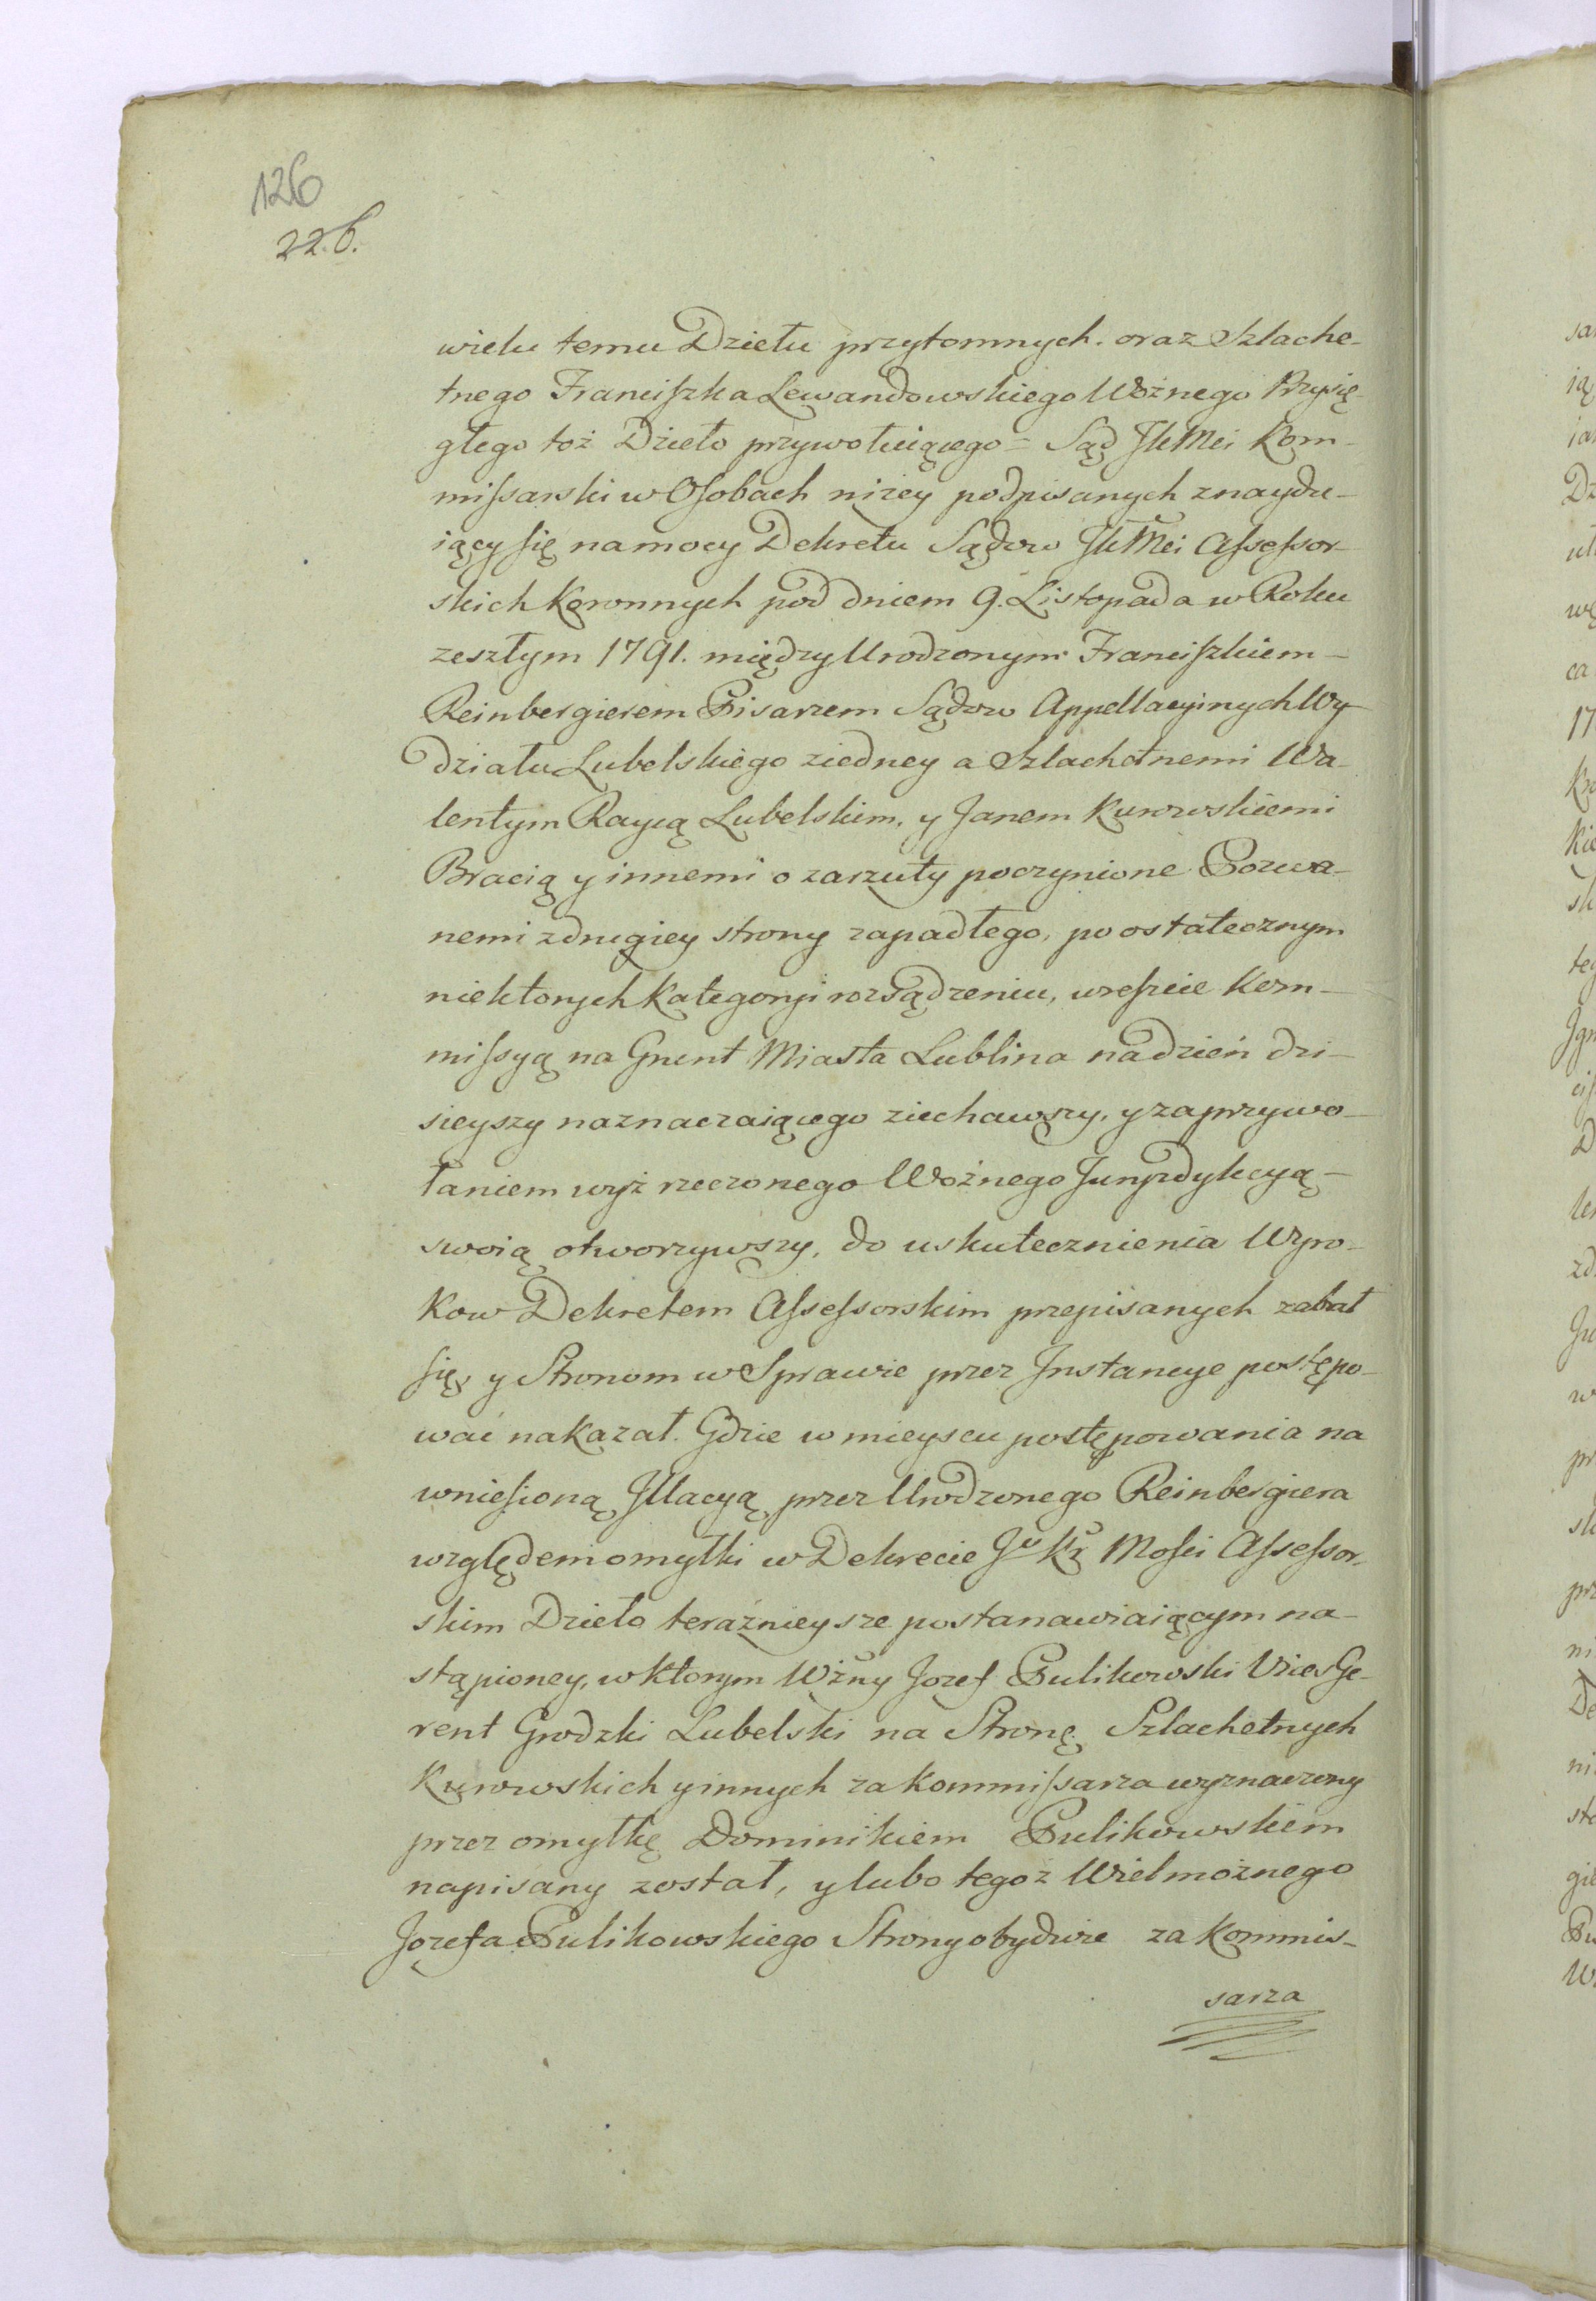 126
22.b.
wielu temu Dziełu przytomnych. oraz Szlache-
tnego Franciszka Lewandowskiego Woźnego Przysię-
głego toż Dzieło przywołuiącego = Sąd JKMci Kom-
missarski w Osobach niżey podpisanych znaydu-
iący się na mocy Dekretu Sądow JKMci Assessor-
skich Koronnych pod dniem 9. Listopada w Roku
zeszłym 1791. między Urodzonym Franciszkiem
Reinbergierem Pisarzem Sądow Appellacyinych Wy-
działu Lubelskiego z iedney a Szlachetnemi Wa-
lentym Raycą Lubelskim, y Janem Kurowskiemi
Bracią y innemi o zarzuty poczynione Pozwa-
nemi z drugiey strony zapadłego, po ostatecznym
niektorych Kategoryi rozsądzeniu, wreszcie Kom-
missyą na Grunt Miasta Lublina na dzień dzi-
sieyszy naznaczaiącego ziechawszy, y za przywo-
łaniem wyż rzeczonego Woźnego Juryzdykcyą
swoią otworzywszy, do uskutecznienia Wyro-
kow Dekretem Assessorskim przepisanych zabrał
się, y Stronom w Sprawie przez Instancye postępo-
wać nakazał. Gdzie w mieyscu postępowania na
wniesioną Illacyą przez Urodzonego Reinbergiera
względem omyłki w Dekrecie J Kr Mosci Assessor-
skim Dzieło teraźnieysze postanawiaiącym na-
stąpioney, w ktorym Wżny Jozef Pulikowski Vices Ge-
rent Grodzki Lubelski na Stronę Szlachetnych
Kurowskich y innych za Kommissarza wyznaczony
przez omyłkę Dominikiem Pulikowskiem
napisany został, y lubo tegoż Wielmożnego
Jozefa Pulikowskiego Strony obydwie za Kommis-
sarza